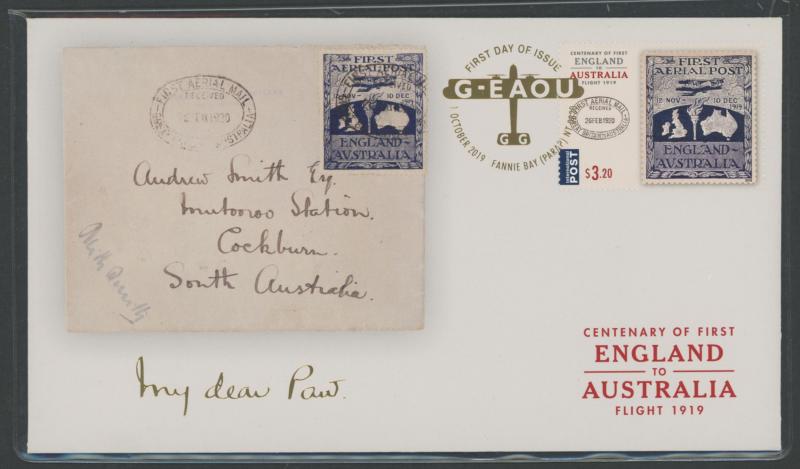 FIRST AERIAL MAIL
RECEIVED
26 FEB 1920
FIRST
AERIAL POST
12 NOV – 10 DEC
1919
ENGLAND
AUSTRALIA
Andrew Smith Esq.
Mutooroo Station.
Cockburn.
South Australia.
Keith Smith
My dear Paw.
FIRST DAY OF ISSUE
G-EAOU
G G
1 OCTOBER 2019 FANNIE BAY (PARAP) NT 0820
CENTENARY OF FIRST
ENGLAND
TO
AUSTRALIA
FLIGHT 1919
FIRST AERIAL MAIL
RECEIVED
26 FEB 1920
GREAT BRITAIN-AUSTRALIA
International
POST
$3.20
FIRST
AERIAL POST
12 NOV – 10 DEC
1919
ENGLAND
AUSTRALIA
CENTENARY OF FIRST
ENGLAND
TO
AUSTRALIA
FLIGHT 1919